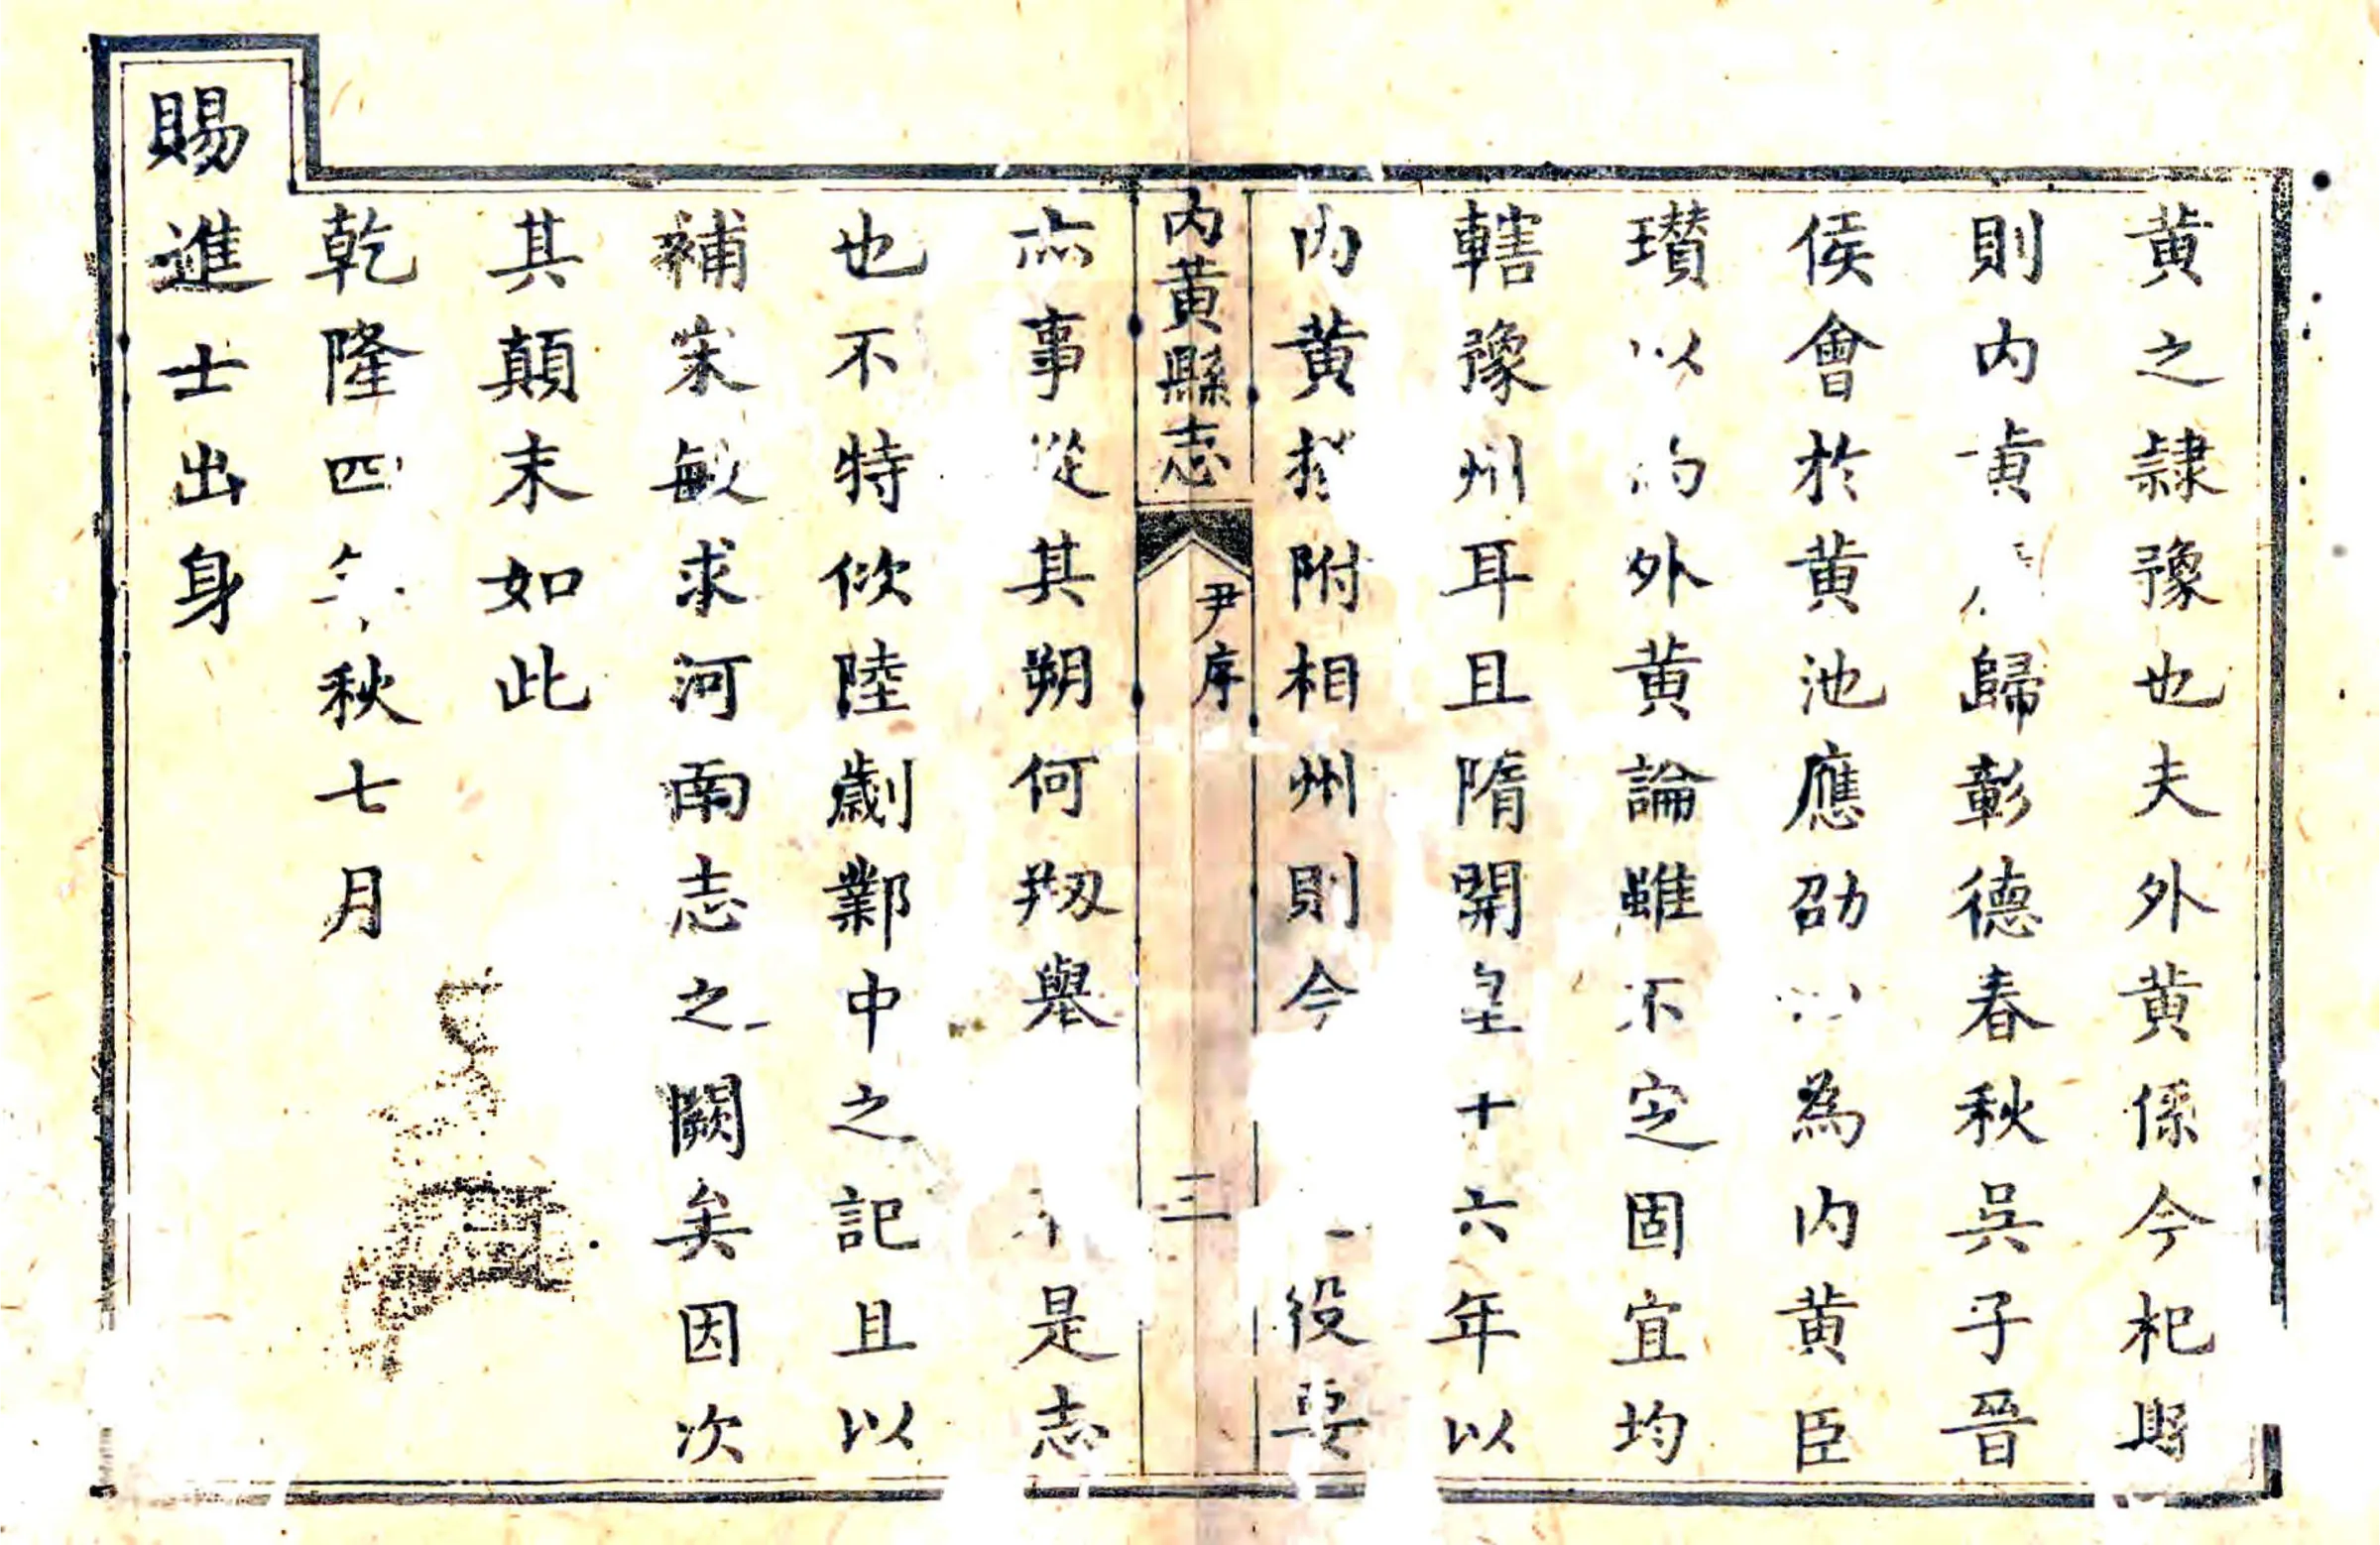 黄之隷豫也夫外黄係今杞縣
則内黄歸彰德春秋吳子晉
侯會於黄池應劭以為内黄臣
瓉以為外黄論雖不定固宜均
轄豫州耳且隋開皇十六年以
内黄附相州則今役
内黄縣志 尹序 三
亦事從其朔何剏舉是志
也不特欲陸劌鄴中之記且以
補宋敏求河南志之闕矣因次
其顛末如此
乾隆四年秋七月
賜進士出身